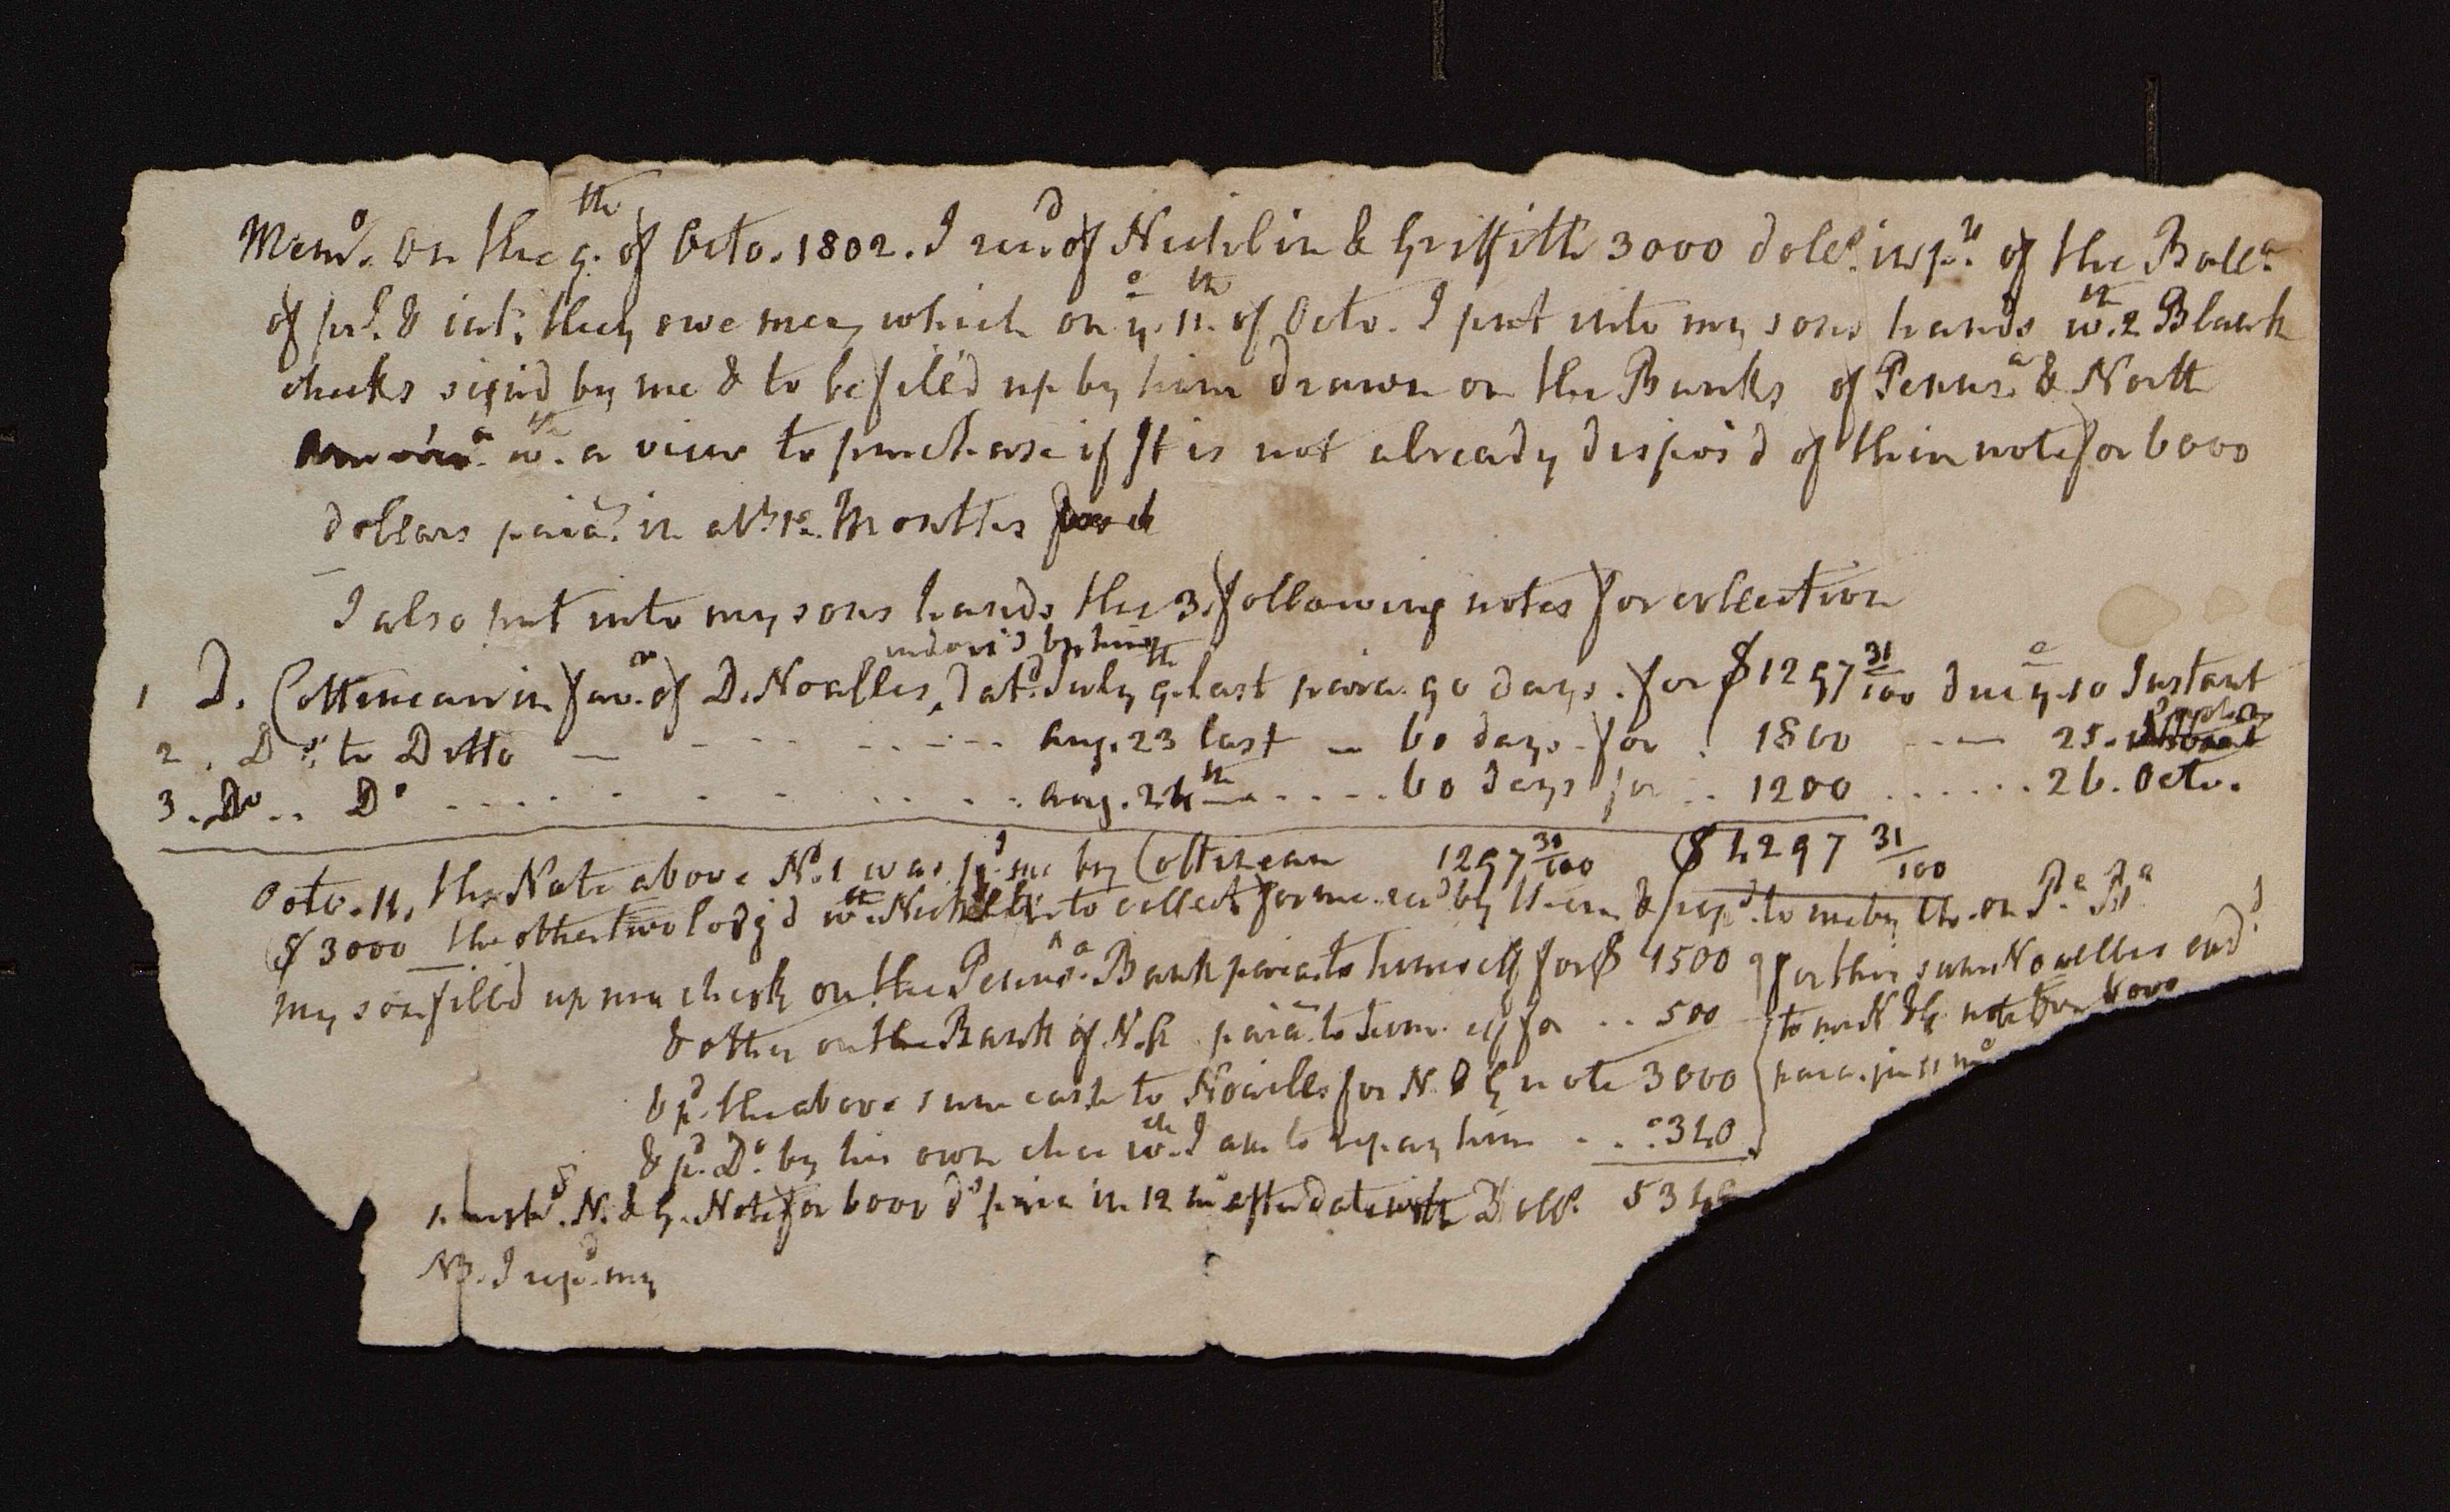 Memo. On the 9th of Octo. 1802. I recd of Nicklin & Griffith 3000 dolls. in pt. of the Balla.
of prl. & int. they owe me, which on ye 11th of Octo. I put into my sons hands wth 2 Blank
checks sign'd by me & to be filed up by him drawn on the Banks of Pennsa. & North
wth a view to purchase if It is not already dispos'd of their note for 6000
dollars paia. in abt 12 Months
I also put into my sons hands the 3 following notes for collection
indors'd by him
1 D. Cottineau in favr. of D. Noailles, datd. July 9th last paia. 90 days. for $1297 31/100 due ye 10 Instant
2. Do. to Ditto — Aug. 23 last — 60 days. for 1800 — 25.
3. Do .. Do ... Aug. 24th .... 60 days for .. 1200 ...... 26. Octo.
Octo. 11, the Note above No. 1 was pd. me by Cottineau 1297 31/100 $4297 31/100
$3000 the other two lodg'd wth Nicklin to collect for me. recd by them & repd. to me by on
My son filled up my check on the Pennsa. Bank paia. to himself for $1500 for this sum Noailles endd.
& other on the Bank of N. A. paia. to himself for .. 500 to me N & G note for 6000
& pd. the above sum cash to Noailles for N. & G note 3000 paia. in 11 mo
& pd. Do. by his own check wch I am to repay him ... 340
N. & G. Note for 6000 ds paia in 12 mo after date with Dolls. 534
NB. I repd. my